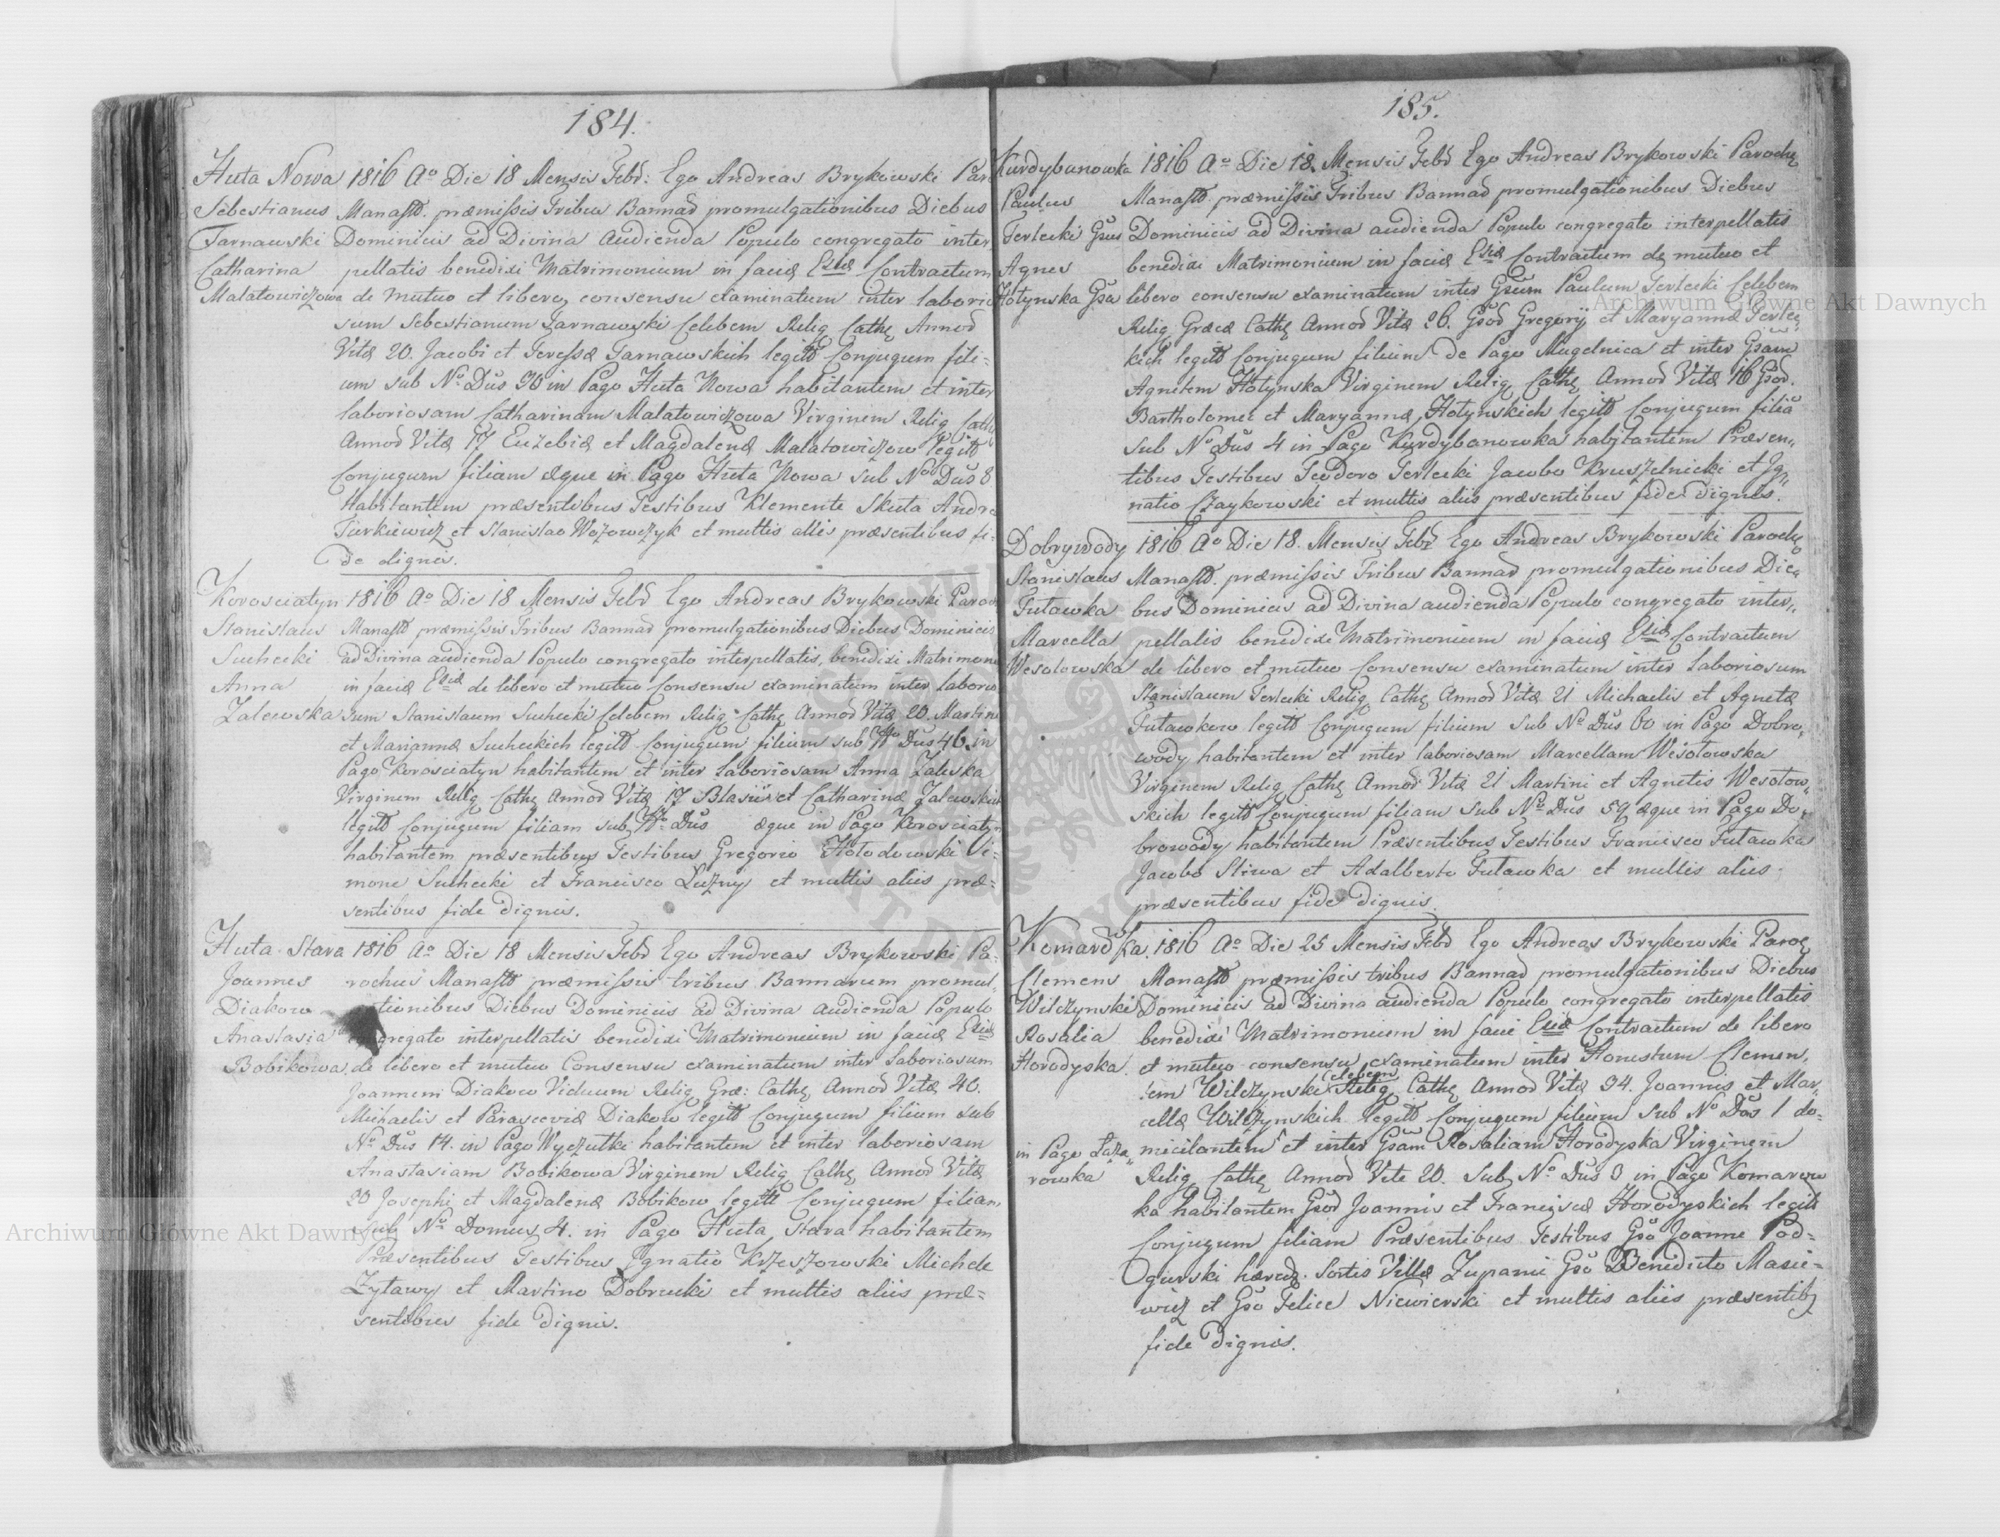 184.
Huta Nowa 1816 Ao Die 18 Mensis Febr: Ego Andreas Brykowski Par
Sebestianus Manastt. præmissis Tribus Bannad promulgationibus Diebus
Tarnawski Dominicis ad Divina Audienda Populo congregato inter
Catharina pellatis benedixi Matrimonium in facie Eccliæ Contractum
Malatowiczowa de mutuo et libero consensu examinatum inter laborio
sum Sebestianum Tarnawski Celebem Relig Cathę Annod
Vitæ 20. Jacobi et Teressæ Tarnawskich legitt Conjugum fili-
um sub No Dūs 26 in Pago Huta Nowa habitantem et inter
laboriosam Catharinam Malatowiczowa Virginem Relig Cathę
Annod Vitæ 17 Euzebiæ et Magdalenæ Malatowiczow legitt
Conjugum filiam æque in Pago Huta Nowa sub No Dūs 8
habitantem præsentibus Testibus Klemente Skuta Andre
Turkiewicz et Stanislao Wozowczyk et multis aliis præsentibus fi-
de dignis.
Korosciatyn 1816 Ao Die 18 Mensis Febr Ego Andreas Brykowski Paroch
Stanislaus Manastt præmissis Tribus Bannad promulgationibus Diebus Dominicis
Suchecki ad Divina audienda Populo congregato interpellatis, benedixi Matrimoni
Anna in facie Eccliæ de libero et mutuo Consensu examinatum inter Laborio
Zalewska sum Stanislaum Suchecki Celebem Relig Cathę Annod Vitæ 20. Martini
et Mariannæ Sucheckich legitt Conjugum filium sub No Dūs 46. in
Pago Korosciatyn habitantem et inter Laboriosam Anna Zalewska
Virginem Relig Cathę Annod Vitæ 17 Blasii et Catharinæ Zalewskich
legitt Conjugum filiam sub No Dūs æque in Pago Korosciatyn
habitantem præsentibus Testibus Gregorio Hołodowski Si-
mone Suchecki et Francisco Luzny et multis aliis præ-
sentibus fide dignis.
Huta Stara 1816 Ao Die 18 Mensis Febr Ego Andreas Brykowski Pa-
Joannes rochus Manastt præmissis tribus Bannarum promul-
Diakow tionibus Diebus Dominicis ad Divina audienda Populo
Anastasia congregato interpellatis benedixi Matrimonium in facie Eccliæ
Bobikowa. de libero et mutuo Consensu examinatum inter Laboriosum
Joannem Diakow Viduum Relig Græ: Cathę Annod Vitæ 40.
Michaelis et Parasceviæ Diakow legitt Conjugum filium sub
No Dūs 14. in Pago Wyczułki habitantem et inter laboriosam
Anastasiam Bobikowa Virginem Relig Cathę Annod Vitæ
20 Josephi et Magdalenæ Bobikow legitt Conjugum filiam
sub No Domus 4. in Pago Huta Stara habitantem
Præsentibus Testibus Ignatio Krzeszowski Michele
Zytawy et Martino Dobrucki et multis aliis præ-
sentibus fide dignis.
185.
Kurdybanowka 1816 Ao Die 18. Mensis Febr Ego Andreas Brykowski Parochę
Paulus Manastt præmissis Tribus Bannad promulgationibus Diebus
Terlecki Gsus Dominicis ad Divina audienda Populo congregato interpellatis
Agnes benedixi Matrimonium in facie Eccliæ Contractum de mutuo et
Hotynska Gsa libero consensu examinatum inter Gsum Paulum Terlecki Celebem
Relig Græcæ Cathę Annod Vitæ 26. Gsod Gregorij et Maryannæ Terlec
kich legitt Conjugum filium de Pago Mugelnica et inter Gsam
Agnetem Hotynska Virginem Relig Cathę Annod Vitæ 16 Gsod.
Bartholomei et Maryannæ Hotynskich legitt Conjugum filiā
sub No Dūs 4 in Pago Kurdybanowka habitantem Præsen-
tibus Testibus Teodoro Terlecki Jacobo Kruszelnicki et Ig-
natio Czaykowski et multis aliis præsentibus fide dignis.
Dobrywody 1816 Ao Die 18. Mensis Febr Ego Andreas Brykowski Parochę
Stanislaus Manastt. præmissis Tribus Bannad promulgationibus Die-
Tutawka bus Dominicis ad Divina audienda Populo congregato inter-
Marcella pellatis benedixi Matrimonium in facie Eccliæ Contractum
Wesołowska de libero et mutuo Consensu examinatum inter Laboriosum
Stanislaum Terlecki Relig Cathę Annod Vitæ 21 Michaelis et Agnetæ
Tutawkow legitt Conjugum filium sub No Dūs 60 in Pago Dobro-
wody habitantem et inter laboriosam Marcellam Wesołowska
Virginem Relig Cathę Annod Vitæ 21 Martini et Agnetis Wesołow-
skich legitt Conjugum filiam sub No Dūs 59 æque in Pago Do-
browody habitantem Præsentibus Testibus Francisco Tutawka
Jacobo Sliwa et Adalberto Tutawka et multis aliis
præsentibus fide dignis.
Komarowka. 1816 Ao Die 25 Mensis Febr Ego Andreas Brykowski Paroc
Clemens Manastt præmissis tribus Bannad promulgationibus Diebus
Wilczynski Dominicis ad Divina audienda Populo congregato interpellatis
Rosalia benedixi Matrimonium in facie Eccliæ Contractum de libero
Horodyska. et mutuo consensu examinatum inter Honestum Clemen-
tem Wilczynski celebem Relig Cathę Annod Vitæ 34. Joannis et Mar-
cellæ Wilczynskich legitt Conjugum filium sub No Dūs 1 do-
in Pago Laza- micilantem et inter Gsam Rosaliam Horodyska Virginem
rowka Relig Cathę Annod Vite 20. sub No Dūs 3 in Pago Komarow
ka habitantem Gsod Joannis et Franciscæ Horodyskich legitt
Conjugum filiam Præsentibus Testibus Gso Joanne Pod-
Ogurski hæred. Sortis Villæ Zupanie Gso Benedicto Masie-
wicz et Gso Felice Niewierski et multis aliis præsentibq
fide dignis.
Archiwum Główne Akt Dawnych
Archiwum Główne Akt Dawnych